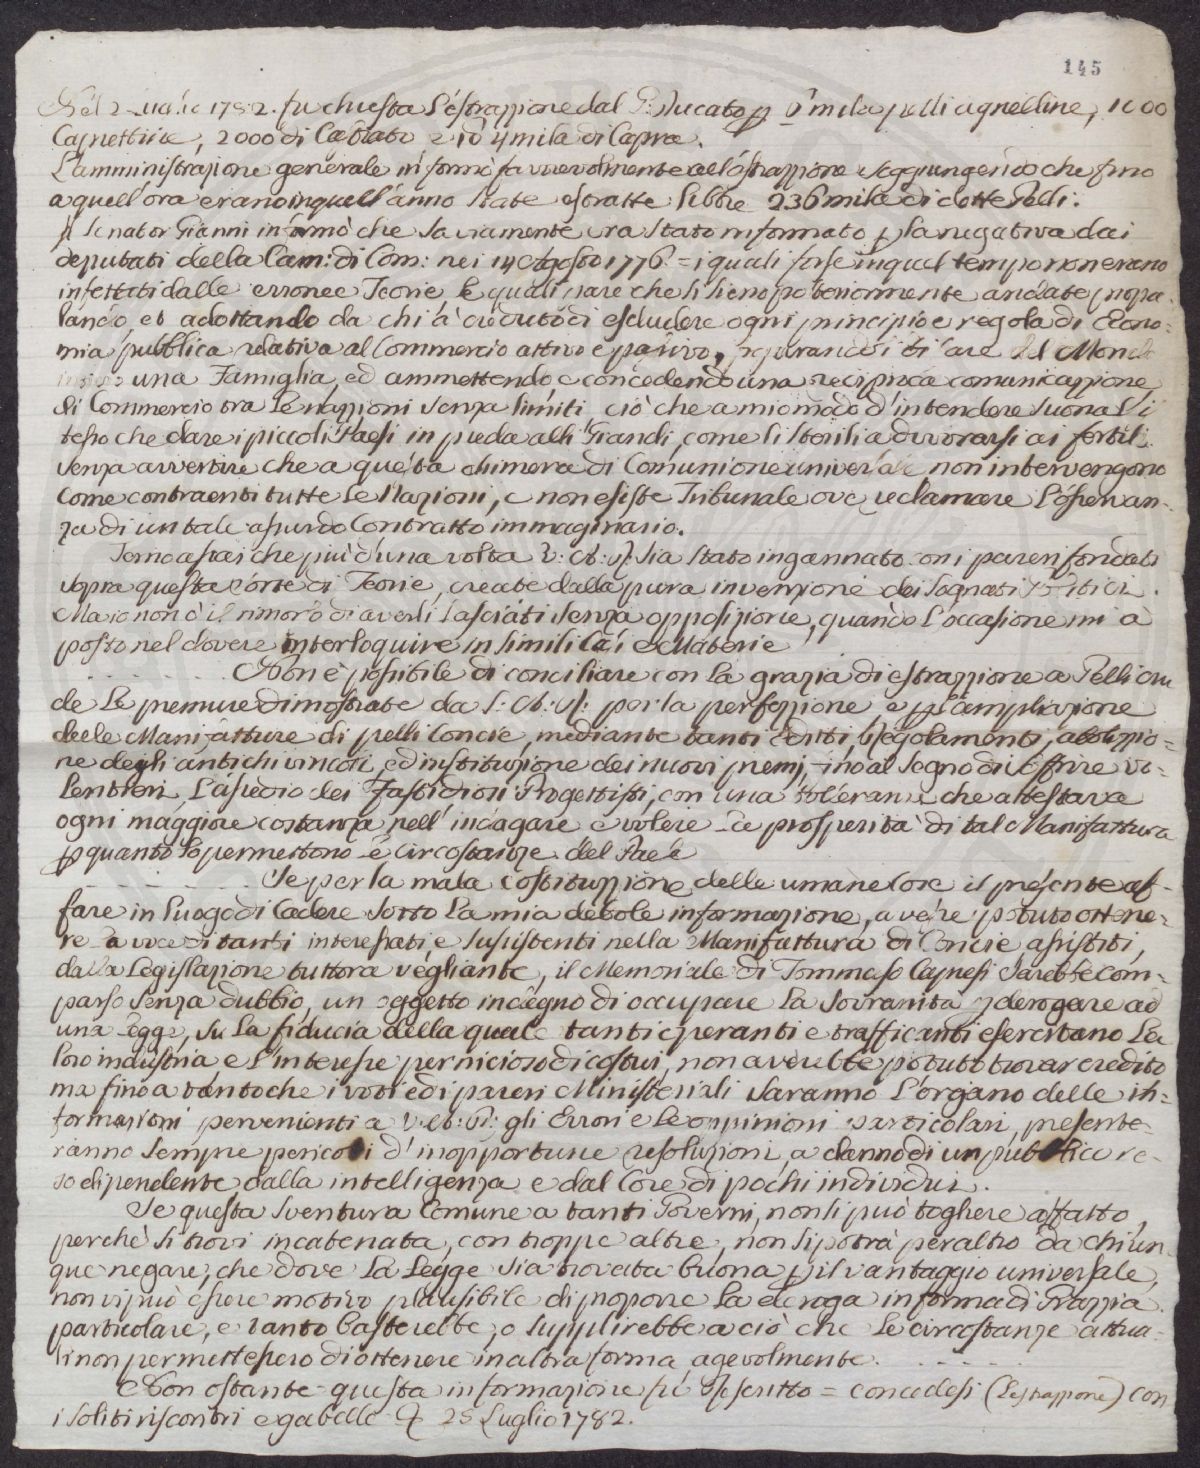 145
Nel 2 Luglio 1782. fu chiesta l'estrazzione dal G: Ducato p mila pelli agnelline, 1000
Caprettine, 2000 di Castrato, e 4 mila di Capra.
L'amministrazione generale informò favorevolmente all'estrazzione soggiungendo che fino
a quell'ora erano in quell'anno state estratte libbre 236 mila di dette Pelli.
Il Senator Gianni informò che saviamente era stato informato p la negativa dai
deputati della Cam: di Com: nei 14 Agosto 1776 = i quali forse in quel tempo non erano
infettati dalle erronee Teorie, le quali pare che si sieno posteriormente andate propa=
lando, et adottando da chi à creduto di escludere ogni principio e regola di Econo=
mia pubblica relativa al Commercio attivo e passivo, figurandosi di fare del Mondo
una Famiglia, ed ammettendo e concedendo una reciproca comunicazzione
di Commercio tra le nazzioni senza limiti, ciò che a mio modo d'intendere suona l'i
stesso che dare i piccoli Paesi in preda alli Grandi, come li sterili a divorarsi ai fertili
senza avvertire che a questa chimera di Comunione universale non intervengono
come contraenti tutte le Nazioni, e non esiste Tribunale ove reclamare l'osservan=
za di un tale assurdo Contratto immaginario.
Temo assai che più d'una volta V: M: R: sia stato ingannato con i pareri fondati
sopra questa sorte di Teorie, create dalla pura invenzione dei Sognati Politici.
Ma io non ò il rimorso di averli lasciati senza opposizione, quando l'occasione mi à
posto nel dovere interloquire in simili Casi e Materie
. . . . . . . . Non è possibile di conciliare con la grazia di estrazzione a Pelli cru
de le premure dimostrate da V: M: R: per la perfezzione e p l'ampliazione
delle Manifatture di pelli Concie, mediante tanti Editti, Regolamenti, abolizzio=
ne degli antichi vincoli, ed instituzione dei nuovi premj, fino al segno di soffrire vo=
lentieri, l'assedio dei Fastidiosi Progettisti, con una tolleranza che attestava
ogni maggiore costanza nell'indagare e volere la prosperità di tal Manifattura
p quanto lo permettono le circostanze del Paese
. . . . . . . . Se per la mala costituzzione delle umane Cose il presente af=
fare in luogo di Cadere sotto la mia debole informazione, avesse potuto ottene=
re la voce di tanti interessati, e sussistenti nella Manifattura di Concie assistiti,
dalla Legislazione tuttora vegliante, il Memoriale di Tommaso Capnesi sarebbe com=
parso senza dubbio, un oggetto indegno di occupare la Sovranità p derogare ad
una legge, su la fiducia della quale tanti operanti e trafficanti esercitano la
loro industria e l'interesse pernicioso di costui, non averebbe potuto trovar credito
ma fino a tanto che i voti ed i pareri Ministeriali saranno l'organo delle in=
formazioni pervenienti a V: M: R: gli Errori e le oppinioni particolari, presente=
ranno sempre pericoli d'inopportune resoluzioni, a danno di un pubblico re=
so dipendente dalla intelligenza e dal Core di pochi individui.
Se questa sventura Comune a tanti Governi, non si può togliere affatto,
perchè si trovi incatenata, con troppe altre, non si potrà peraltro da chiun=
que negare, che dove la Legge sia trovata buona p il vantaggio universale,
non vi può essere motivo plausibile di proporre la deroga in forma di Grazzia
particolare, e tanto basterebbe, o supplirebbe a ciò che le circostanze attua=
li non permettessero di ottenere in altra forma agevolmente. . . . . . .
Non ostante questa informazione fu rescritto = concedesi (l'estrazzione) con
i soliti riscontri e gabelle. 25 Luglio 1782.